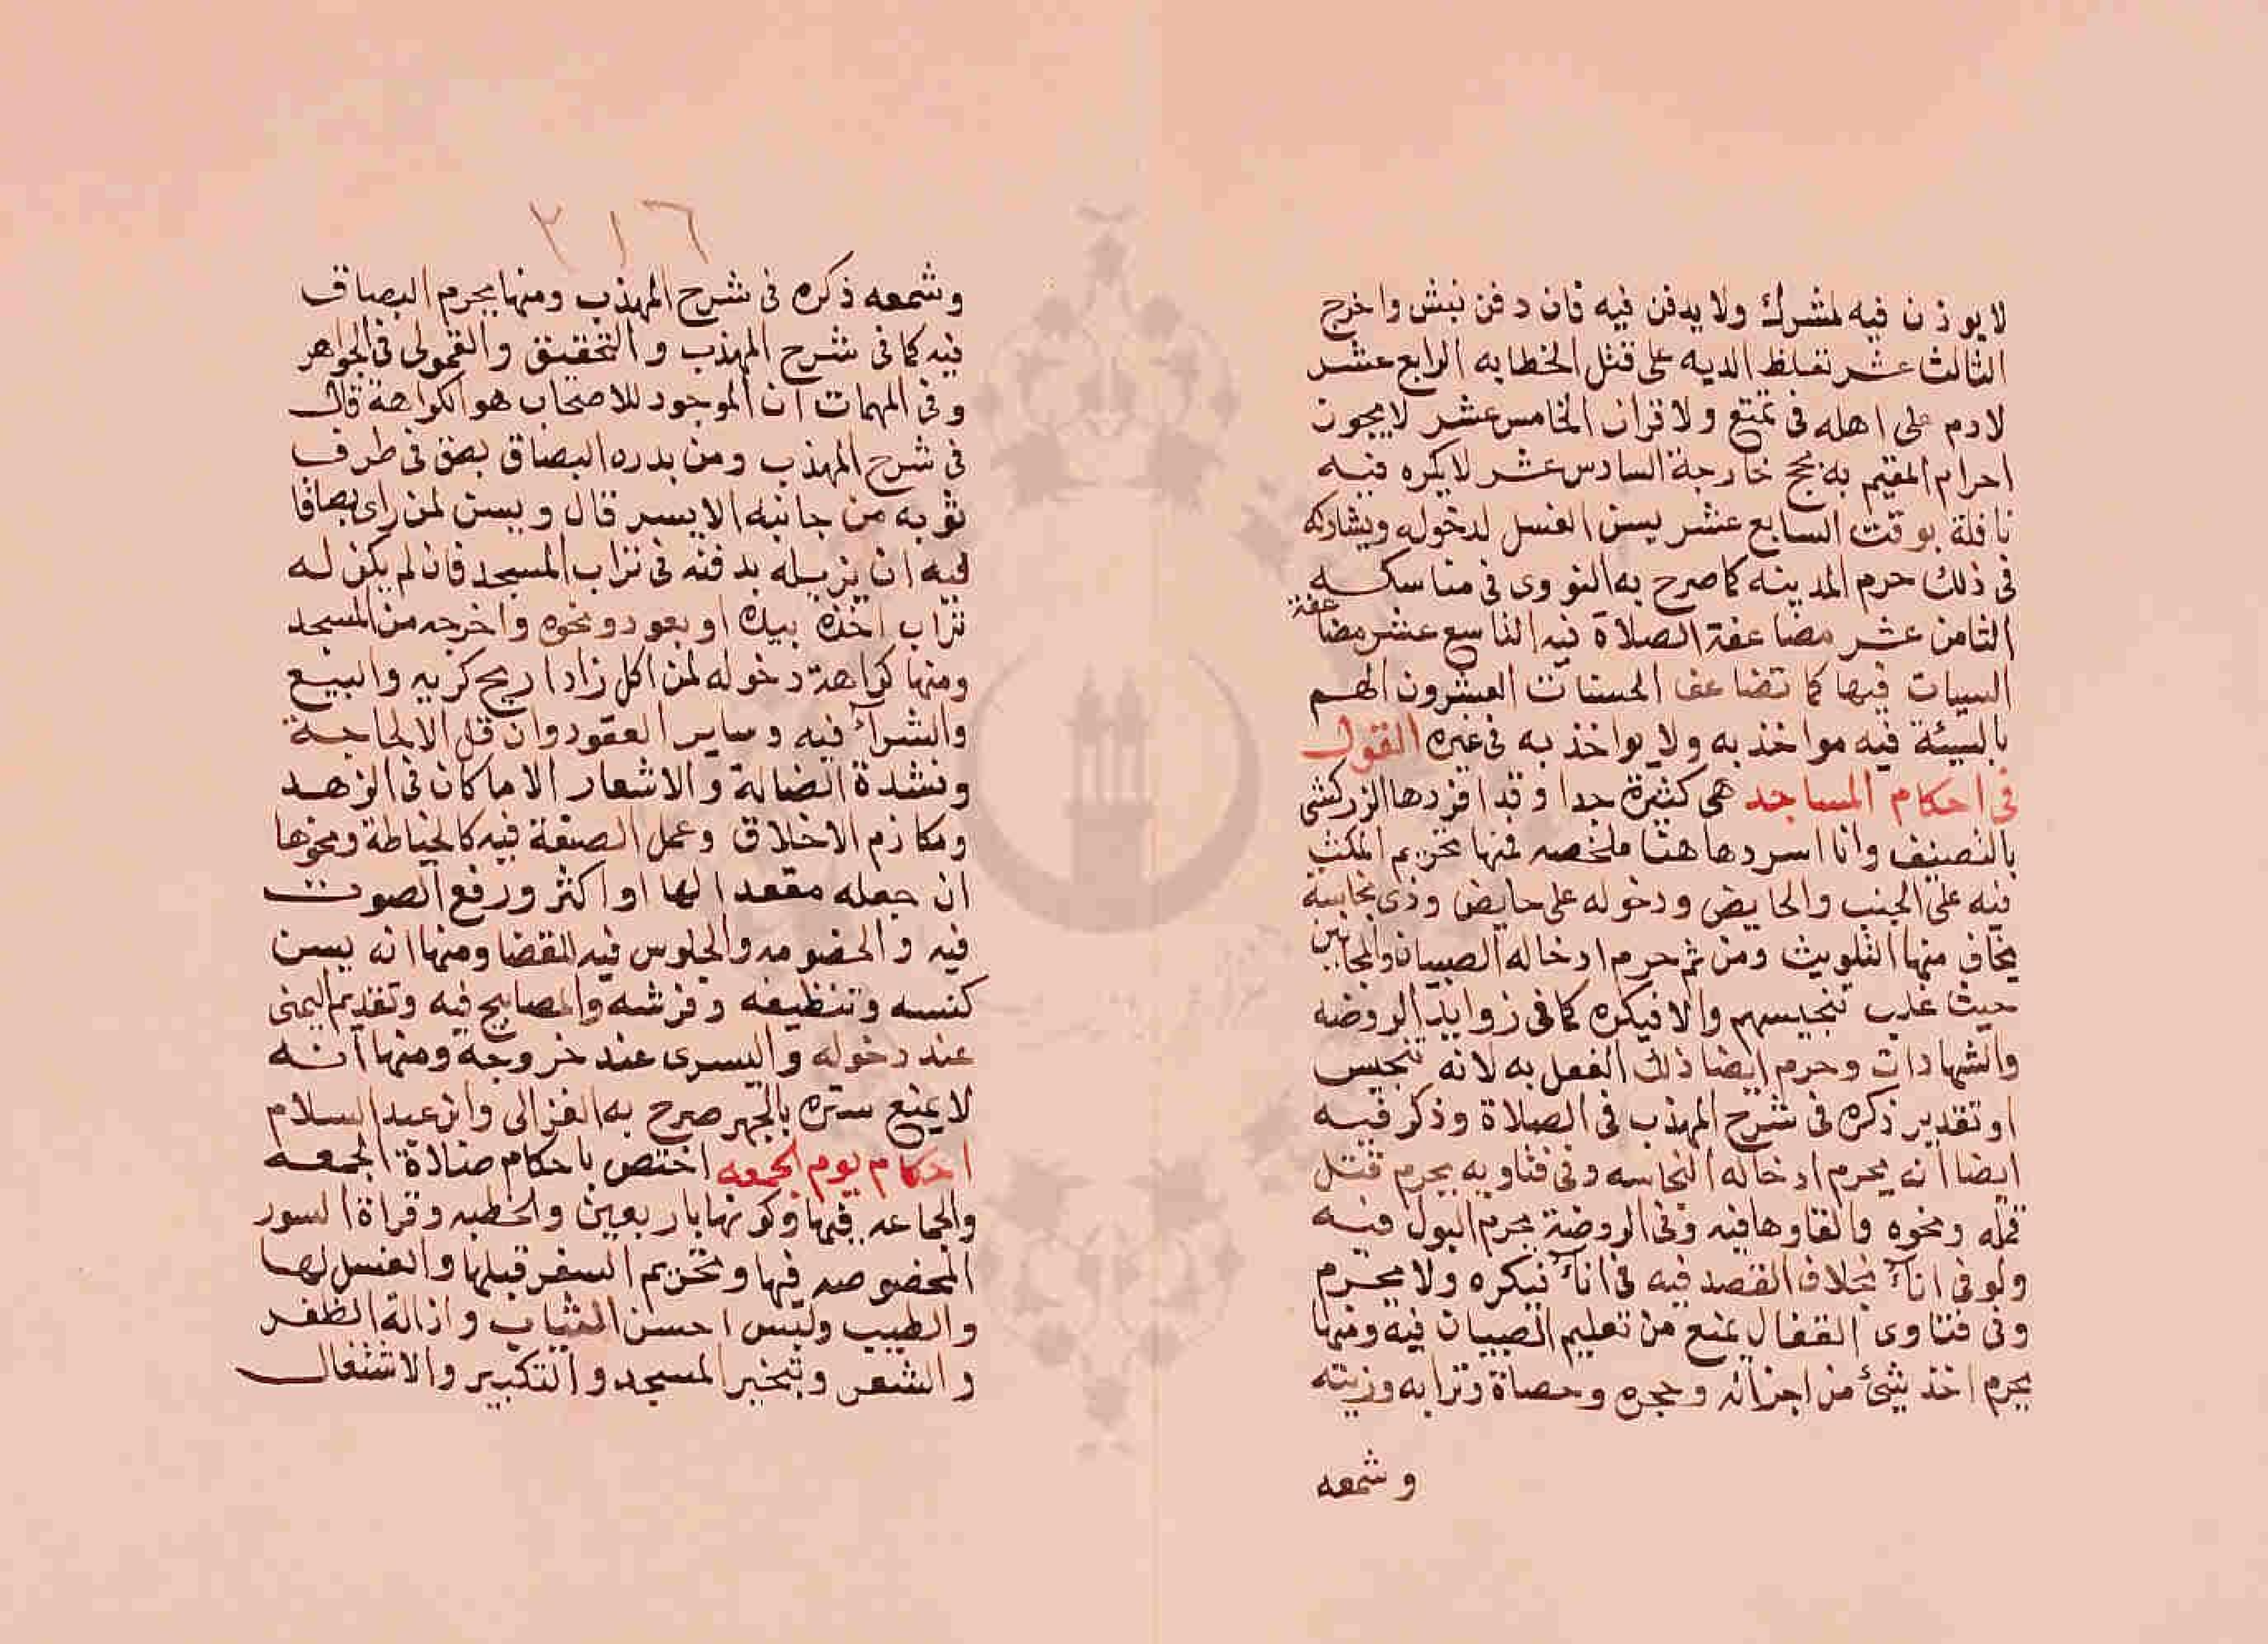 لا يوذن فيه لمشرك ولا يدفن فيه فان دفن نبش واخرج
الثالث عشر تغلظ الديه على قتل الخطا به الرابع عشر
لا دم على اهله في تمتع ولا قران الخامس عشر لا يجوز
احرام المقيم به بحج خارجة السادس عشر لا يكره فيه
نافلة بوقت السابع عشر يسن الغسل لدخوله ويشاركه
في ذلك حرم المدينه كما صرح به النووى في مناسكه
الثامن عشر مضاعفة الصلاة فيه التاسع عشر مضاعفة
السيات فيها كما تضاعف الحسنات العشرون الهم
بالسيئة فيه مواخذ به ولا يواخذ به في غيره القول
في احكام المساجد هى كثيرة جدا وقد افردها الزركشى
بالتصنيف وانا اسردها هنا ملخصه فمنها تحريم المكث
فيه على الجنب والحايض ودخوله على حايض وذى نجاسة
يخاف منها التلويث ومن ثم حرم ادخاله الصبيان والمجانين
حيث غلب تنجيسهم والا فيكره كما في زوايد الروضه
والشهادات وحرم ايضا ذلك الفعل به لانه تنجيس
او تقدير ذكره في شرح المهذب في الصلاة وذكر فيه
ايضا انه يحرم ادخاله النجاسه وفي فتاويه يحرم قتل
قمله ونحوه والقاوها فيه وفي الروضة يحرم البول فيه
ولو في اناء بخلاف الفصد فيه في اناء فيكره ولا يحرم
وفي فتاوى القفال يمنع من تعليم الصبيان فيه ومنها
يحرم اخذ شئ من اجزائه وحجره وحصاة وترابه وزيته
وشمعه
٢١٦
وشمعه ذكره في شرح المهذب ومنها يحرم البصاق
فيه كما في شرح المهذب والتحقيق والقمولى في الجواهر
وفي المهمات ان الموجود للاصحاب هو الكراهة قال
في شرح المهذب ومن بدره البصاق بصق في طرف
ثوبه من جانبه الايسر قال ويسن لمن راى بصاقا
فيه ان يزيله بدفنه في تراب المسجد فان لم يكن له
تراب اخذه بيده او بعود ونحوه واخرجه من المسجد
ومنها كراهة دخوله لمن اكل زاد اريح كريه والبيع
والشراء فيه وساير العقود وان قل الا لحاجة
ونشدة الضالة والاشعار الا ما كان في الزهد
ومكارم الاخلاق وعمل الصنعة فيه كالخياطة ونحوها
ان جعله مقعدا لها او اكثر ورفع الصوت
فيه والخصومه والجلوس فيه للقضا ومنها انه يسن
كنسه وتنظيفه وفرشه والمصابيح فيه وتقديم اليمنى
عند دخوله واليسرى عند خروجة ومنها انه
لا يمنع ستره بالجهر صرح به الغزالى وابن عبد السلام
احكام يوم الجمعه اختص باحكام صلاة الجمعه
والجماعه فيها وكونها باربعين والخطبه وقراة السور
المخصوصه فيها وتحريم السفر قبلها والغسل لها
والطيب ولبس احسن الثياب وازالة الظفر
والشعر وتبخير المسجد والتكبير والاشتغال